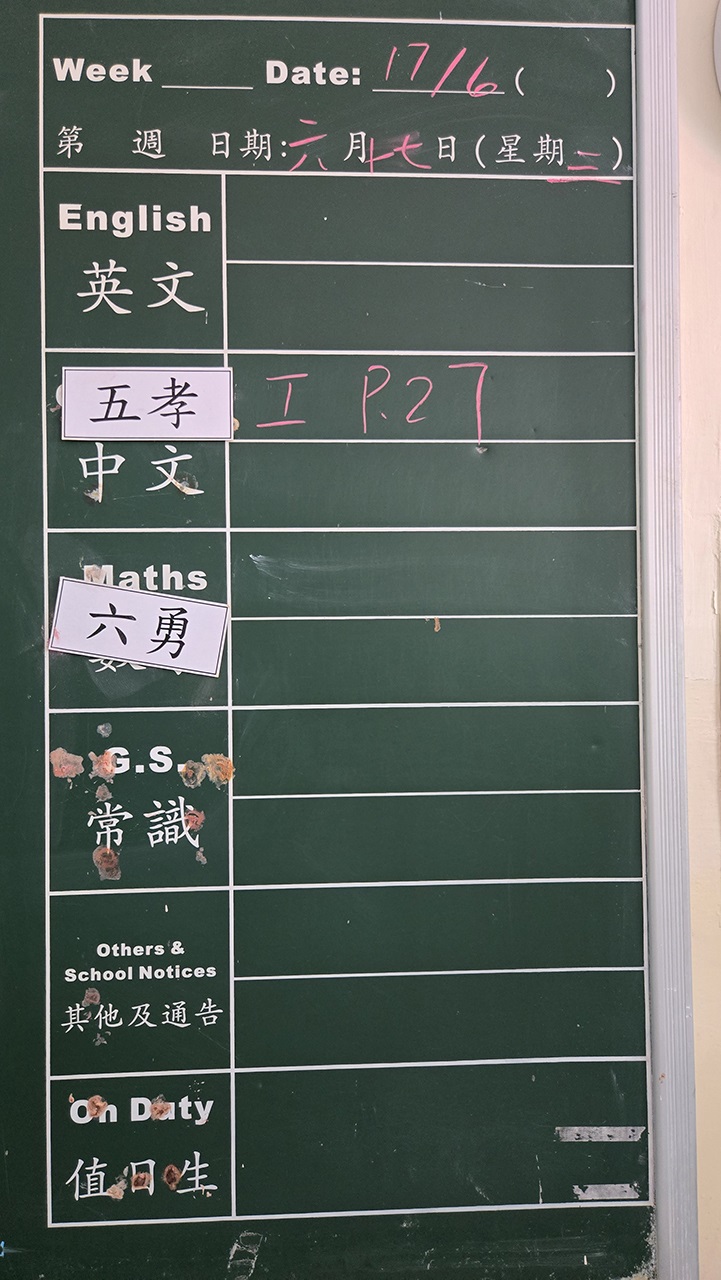 Week ____ Date: 17/6 (    )
第 週 日期:六月十七日(星期二)
English
英文
五孝 I P.27
中文
Maths
六勇
G.S.
常識
Others &
School Notices
其他及通告
On Duty
值日生